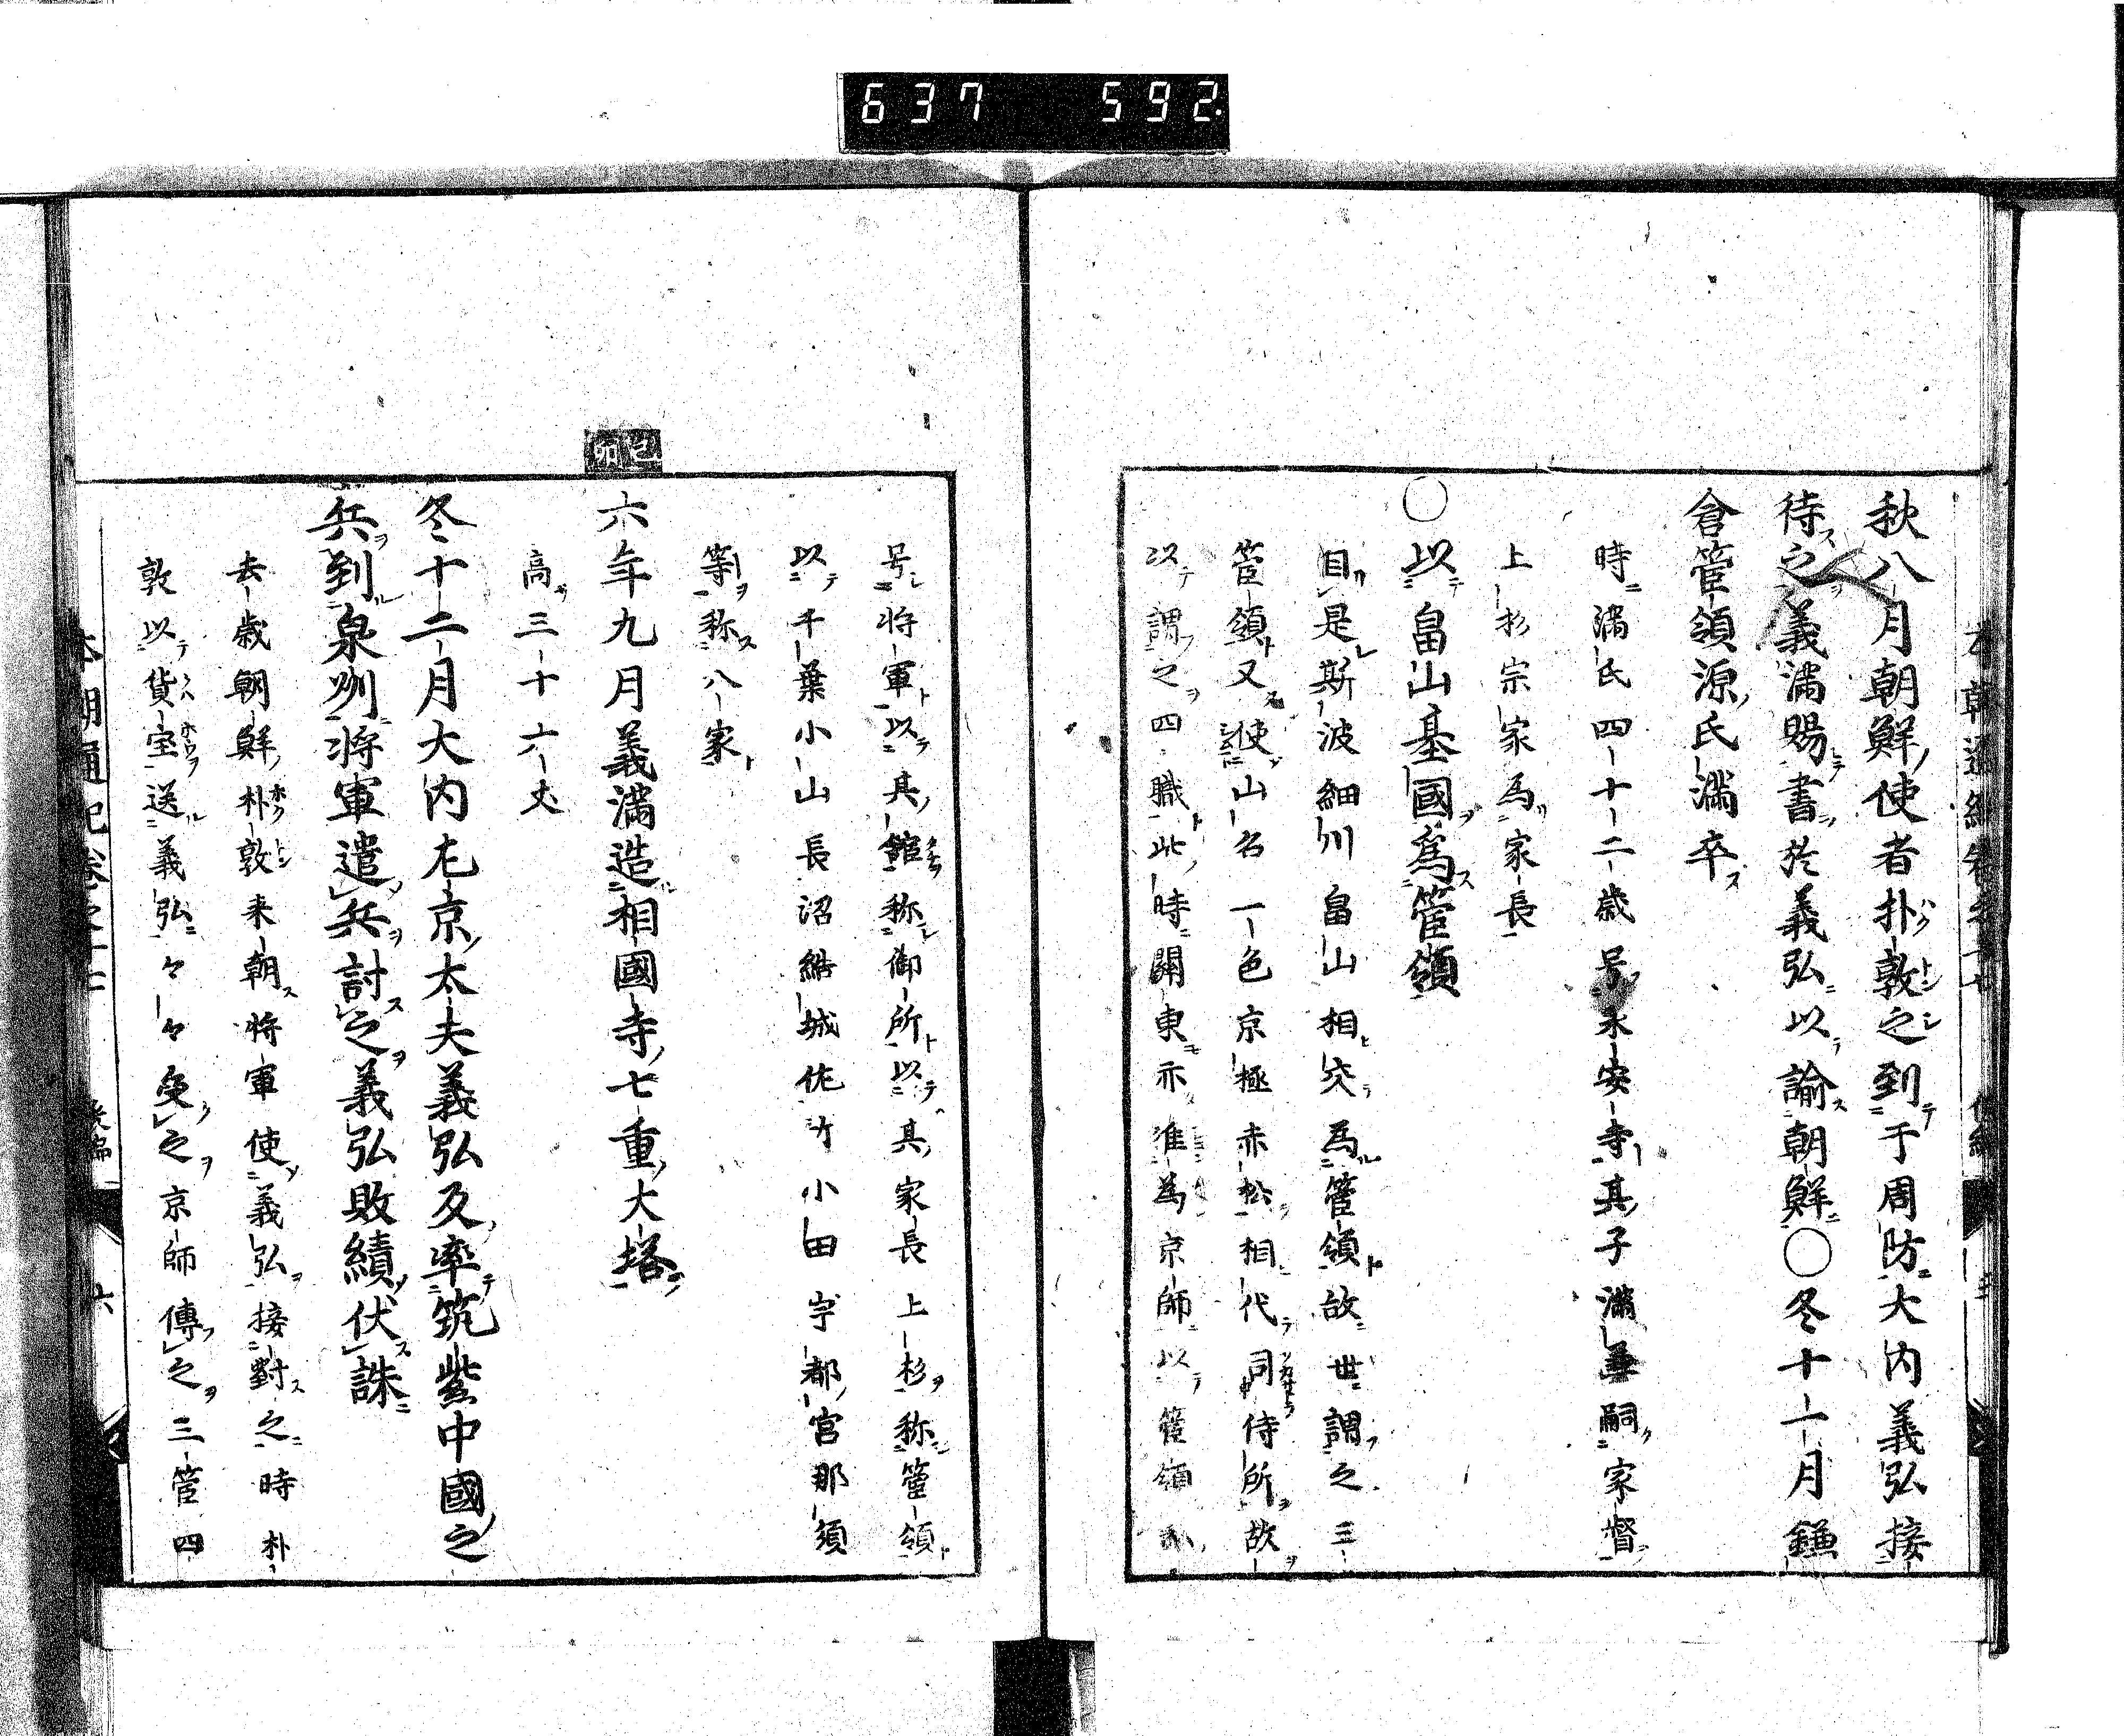 637 592
秋八月朝鮮使者朴敦之到于周防大内義弘接
待之義満賜書於義弘以諭朝鮮○冬十一月鎌
倉管領源氏満卒
時満氏四十二歳号永安寺其子満兼嗣家督
上杉宗家為家長
○以畠山基國為管領
自是斯波細川畠山相交為管領故世謂之三
管領又使山名一色京極赤松相代司侍所故
以謂之四職此時關東亦准為京師以管領
号将軍以其館称御所以其家長上杉称管領
以千葉小山長沼結城佐竹小田宇都宮那須
等称八家
己卯
六年九月義満造相國寺七重大塔
高三十六丈
冬十二月大内左京太夫義弘反率筑紫中國之
兵到泉州将軍遣兵討之義弘敗績伏誅
去歳朝鮮朴敦来朝将軍使義弘接對之時朴
敦以貨宝送義弘々々受之京師傳之三管四
本朝通紀巻之十七 後編 六